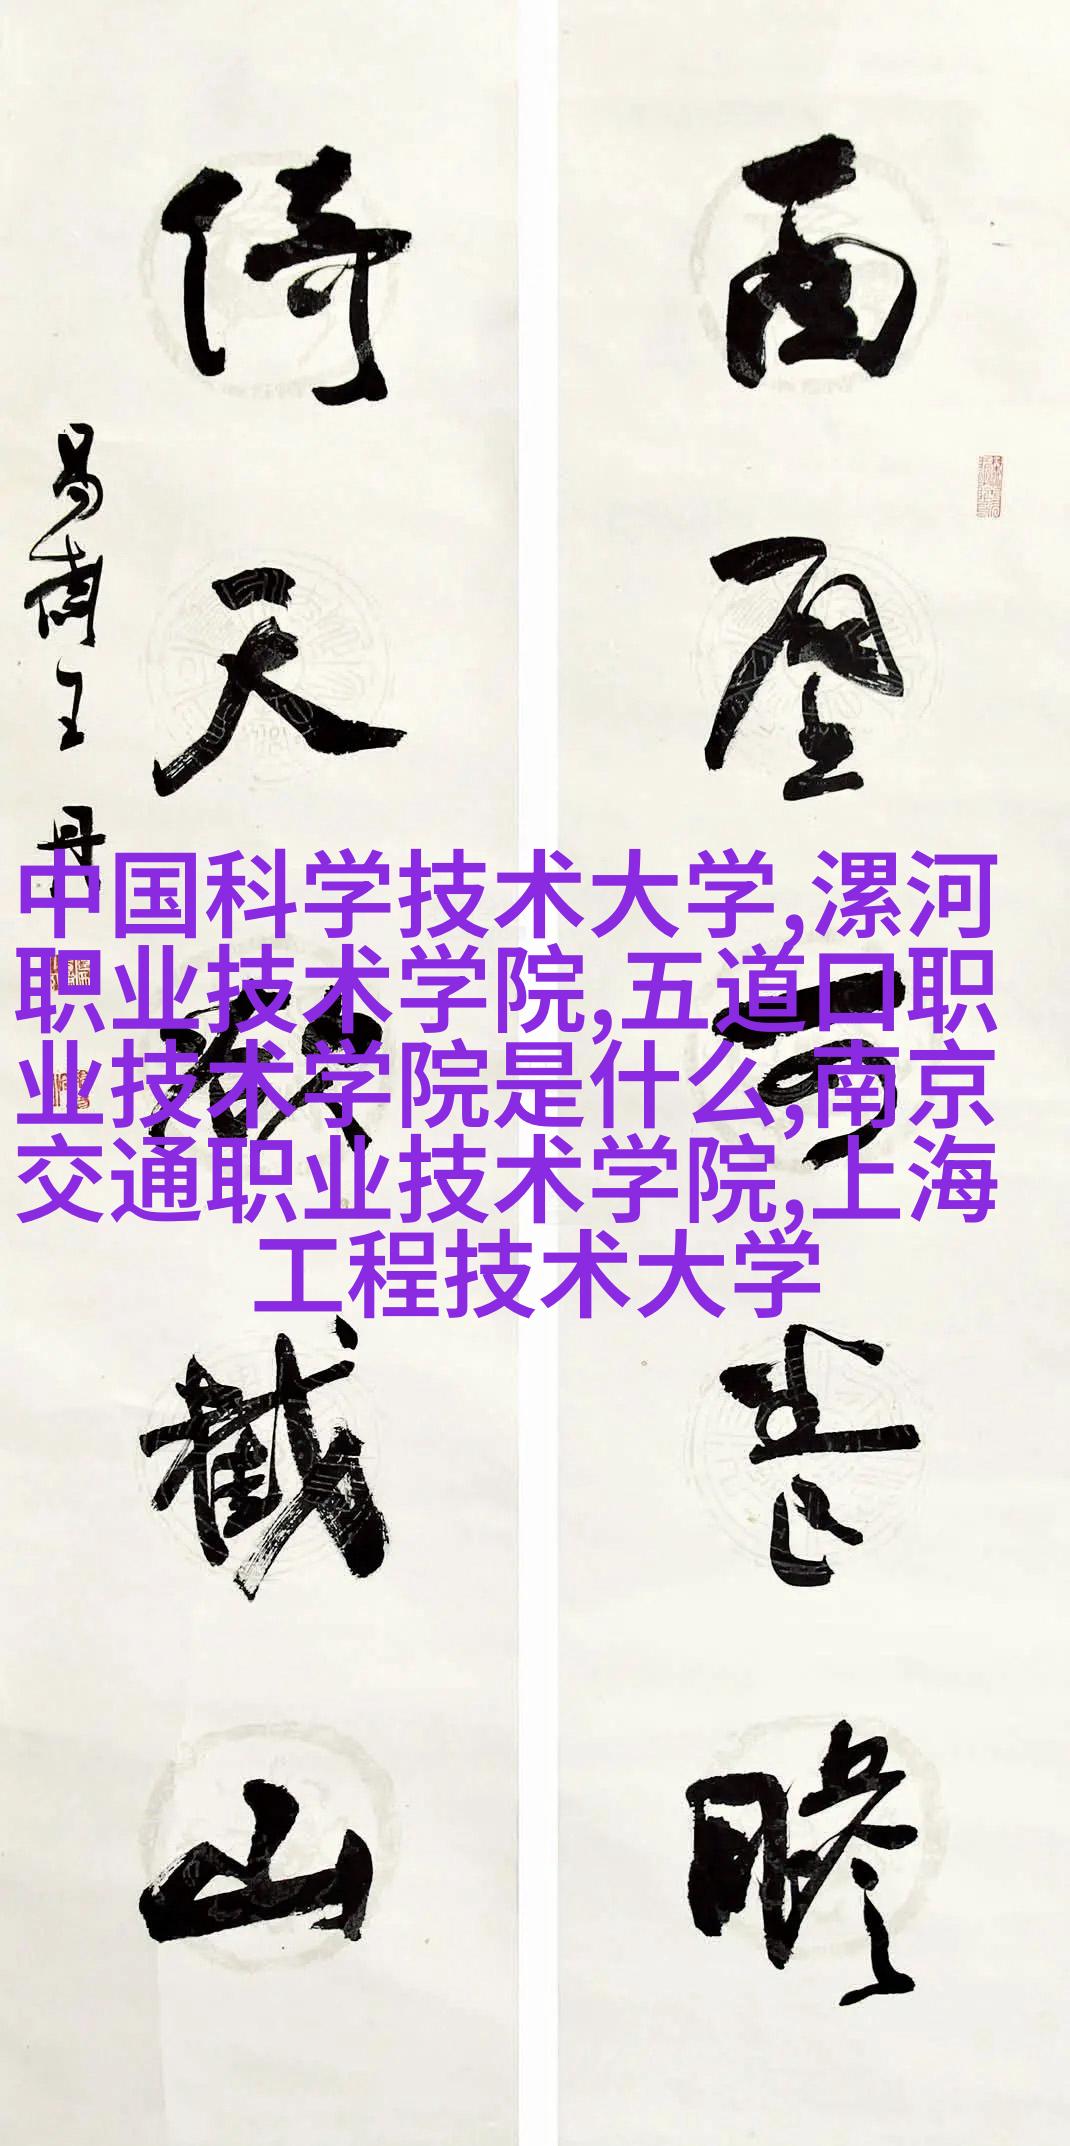 面壁
倚天
截山
王丹
中国科学技术大学,漯河
职业技术学院,五道口职
业技术学院是什么,南京
交通职业技术学院,上海
工程技术大学